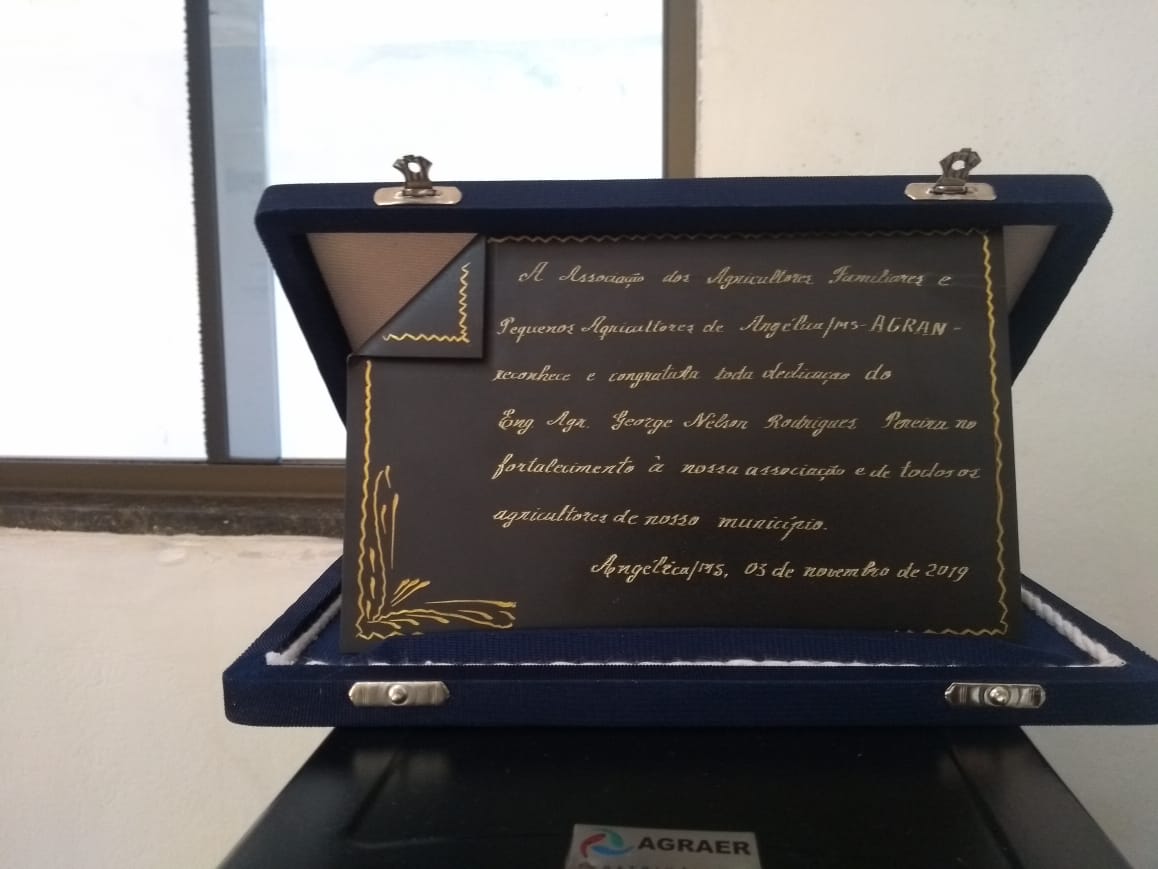 A Associação dos Agricultores Familiares e
Pequenos Agricultores de Angélica/MS-AGRAN-
reconhece e congratula toda dedicação do
Eng Agr. George Nelson Rodrigues Pereira no
fortalecimento à nossa associação e de todos os
agricultores de nosso município.
Angélica/MS, 03 de novembro de 2019
AGRAER